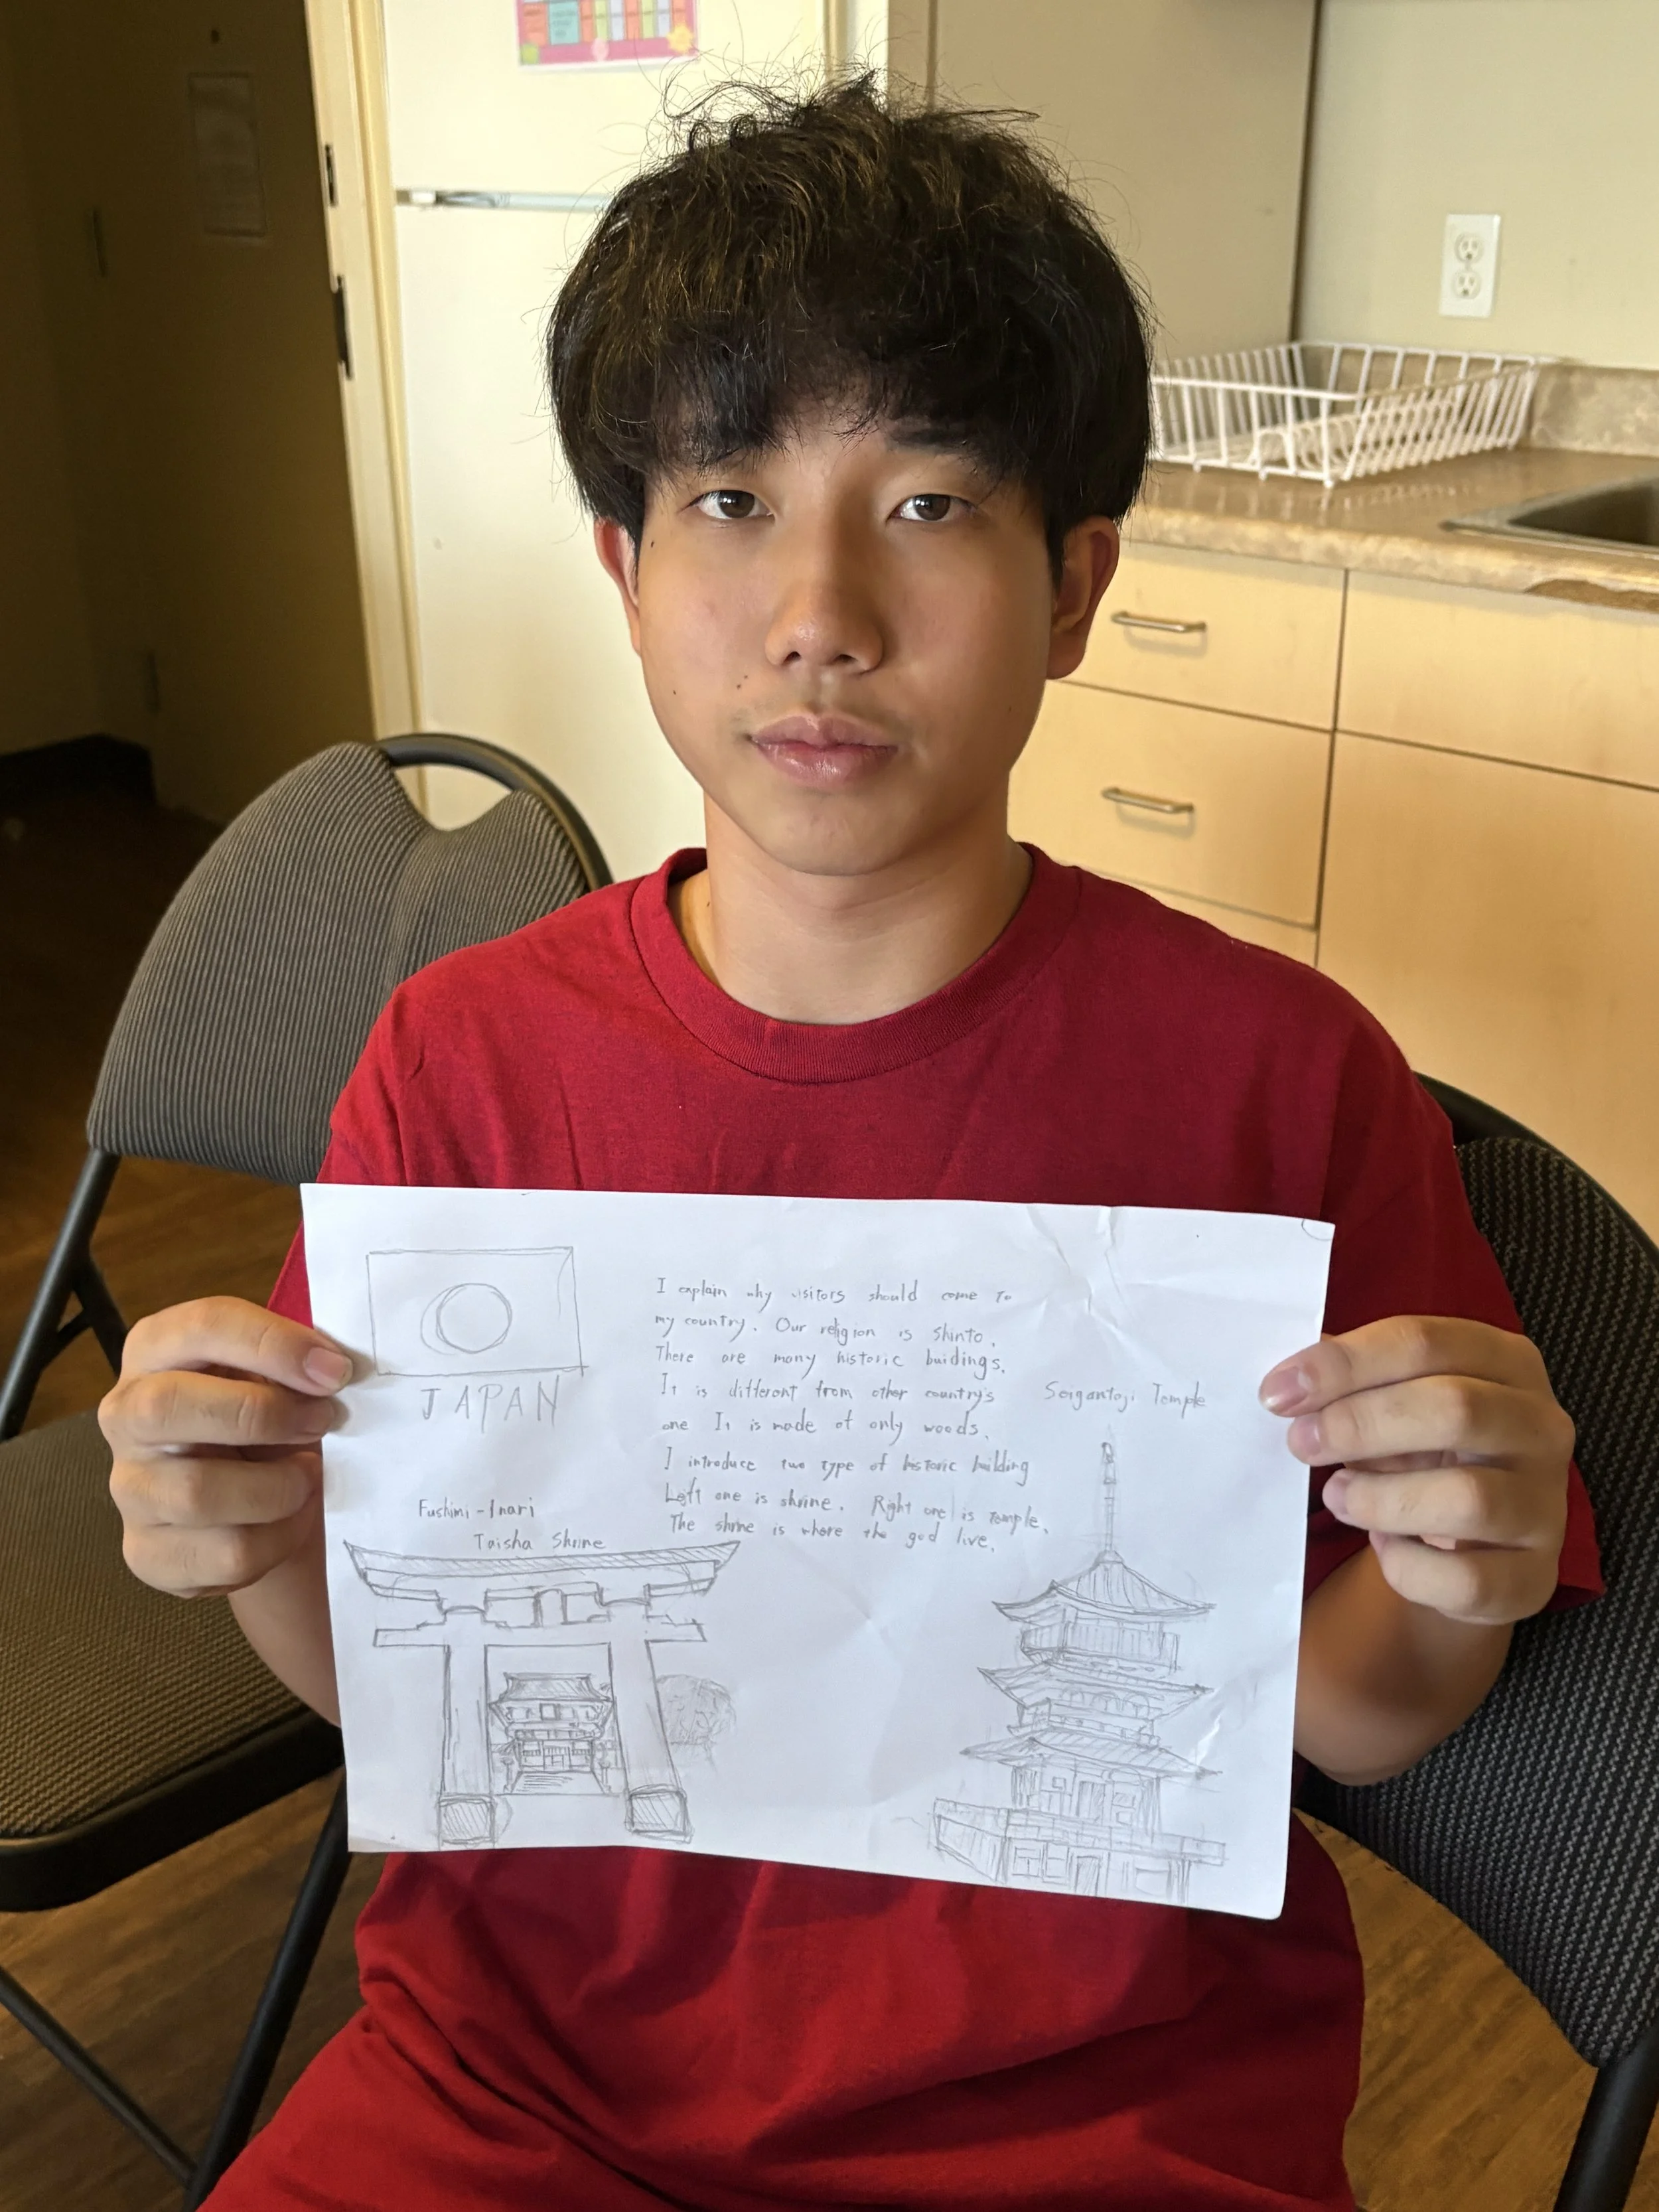 JAPAN
I explain why visitors should come to
my country. Our religion is shinto.
There are many historic buidings.
It is different from other country's
one It is made of only woods.
I introduce two type of historic building
Left one is shrine. Right one is temple.
The shrine is where the god live.
Seigantoji Temple
Fushimi-Inari
Taisha Shrine